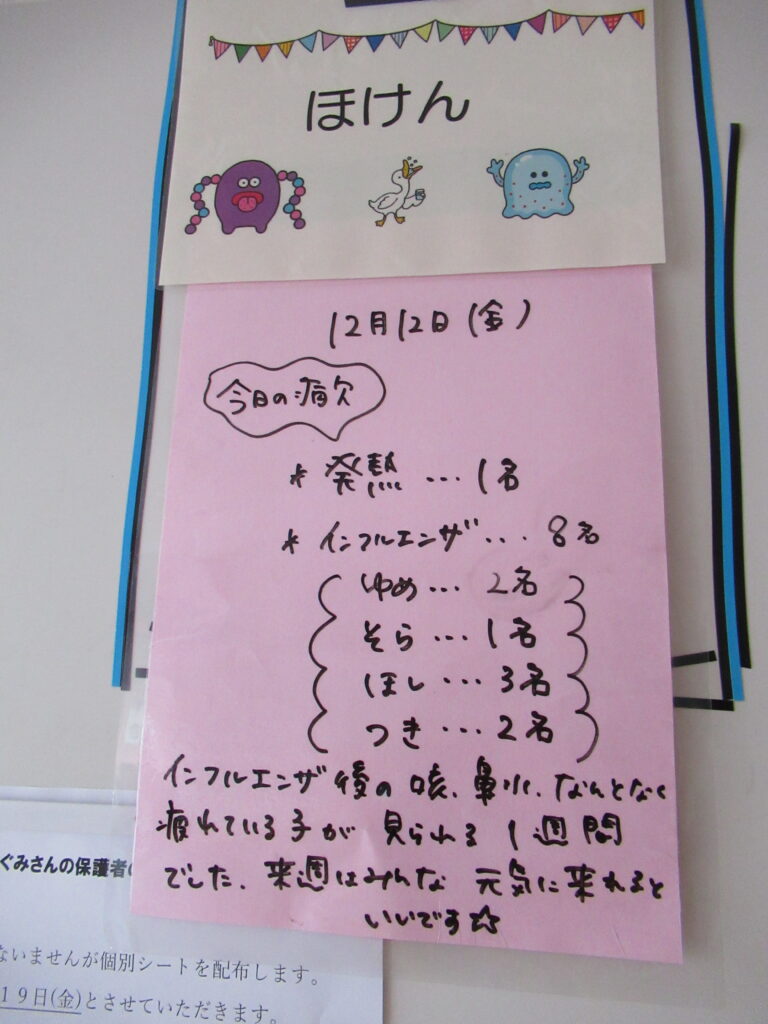 ほけん
12月12日(金)
今日の病欠
* 発熱 … 1名
* インフルエンザ … 8名
ゆめ … 2名
そら … 1名
ほし … 3名
つき … 2名
インフルエンザ後の咳、鼻水、なんとなく
疲れている子が見られる1週間
でした。来週はみんな元気に来れると
いいです☆
ぐみさんの保護者
ないませんが個別シートを配布します。
19日(金)とさせていただきます。